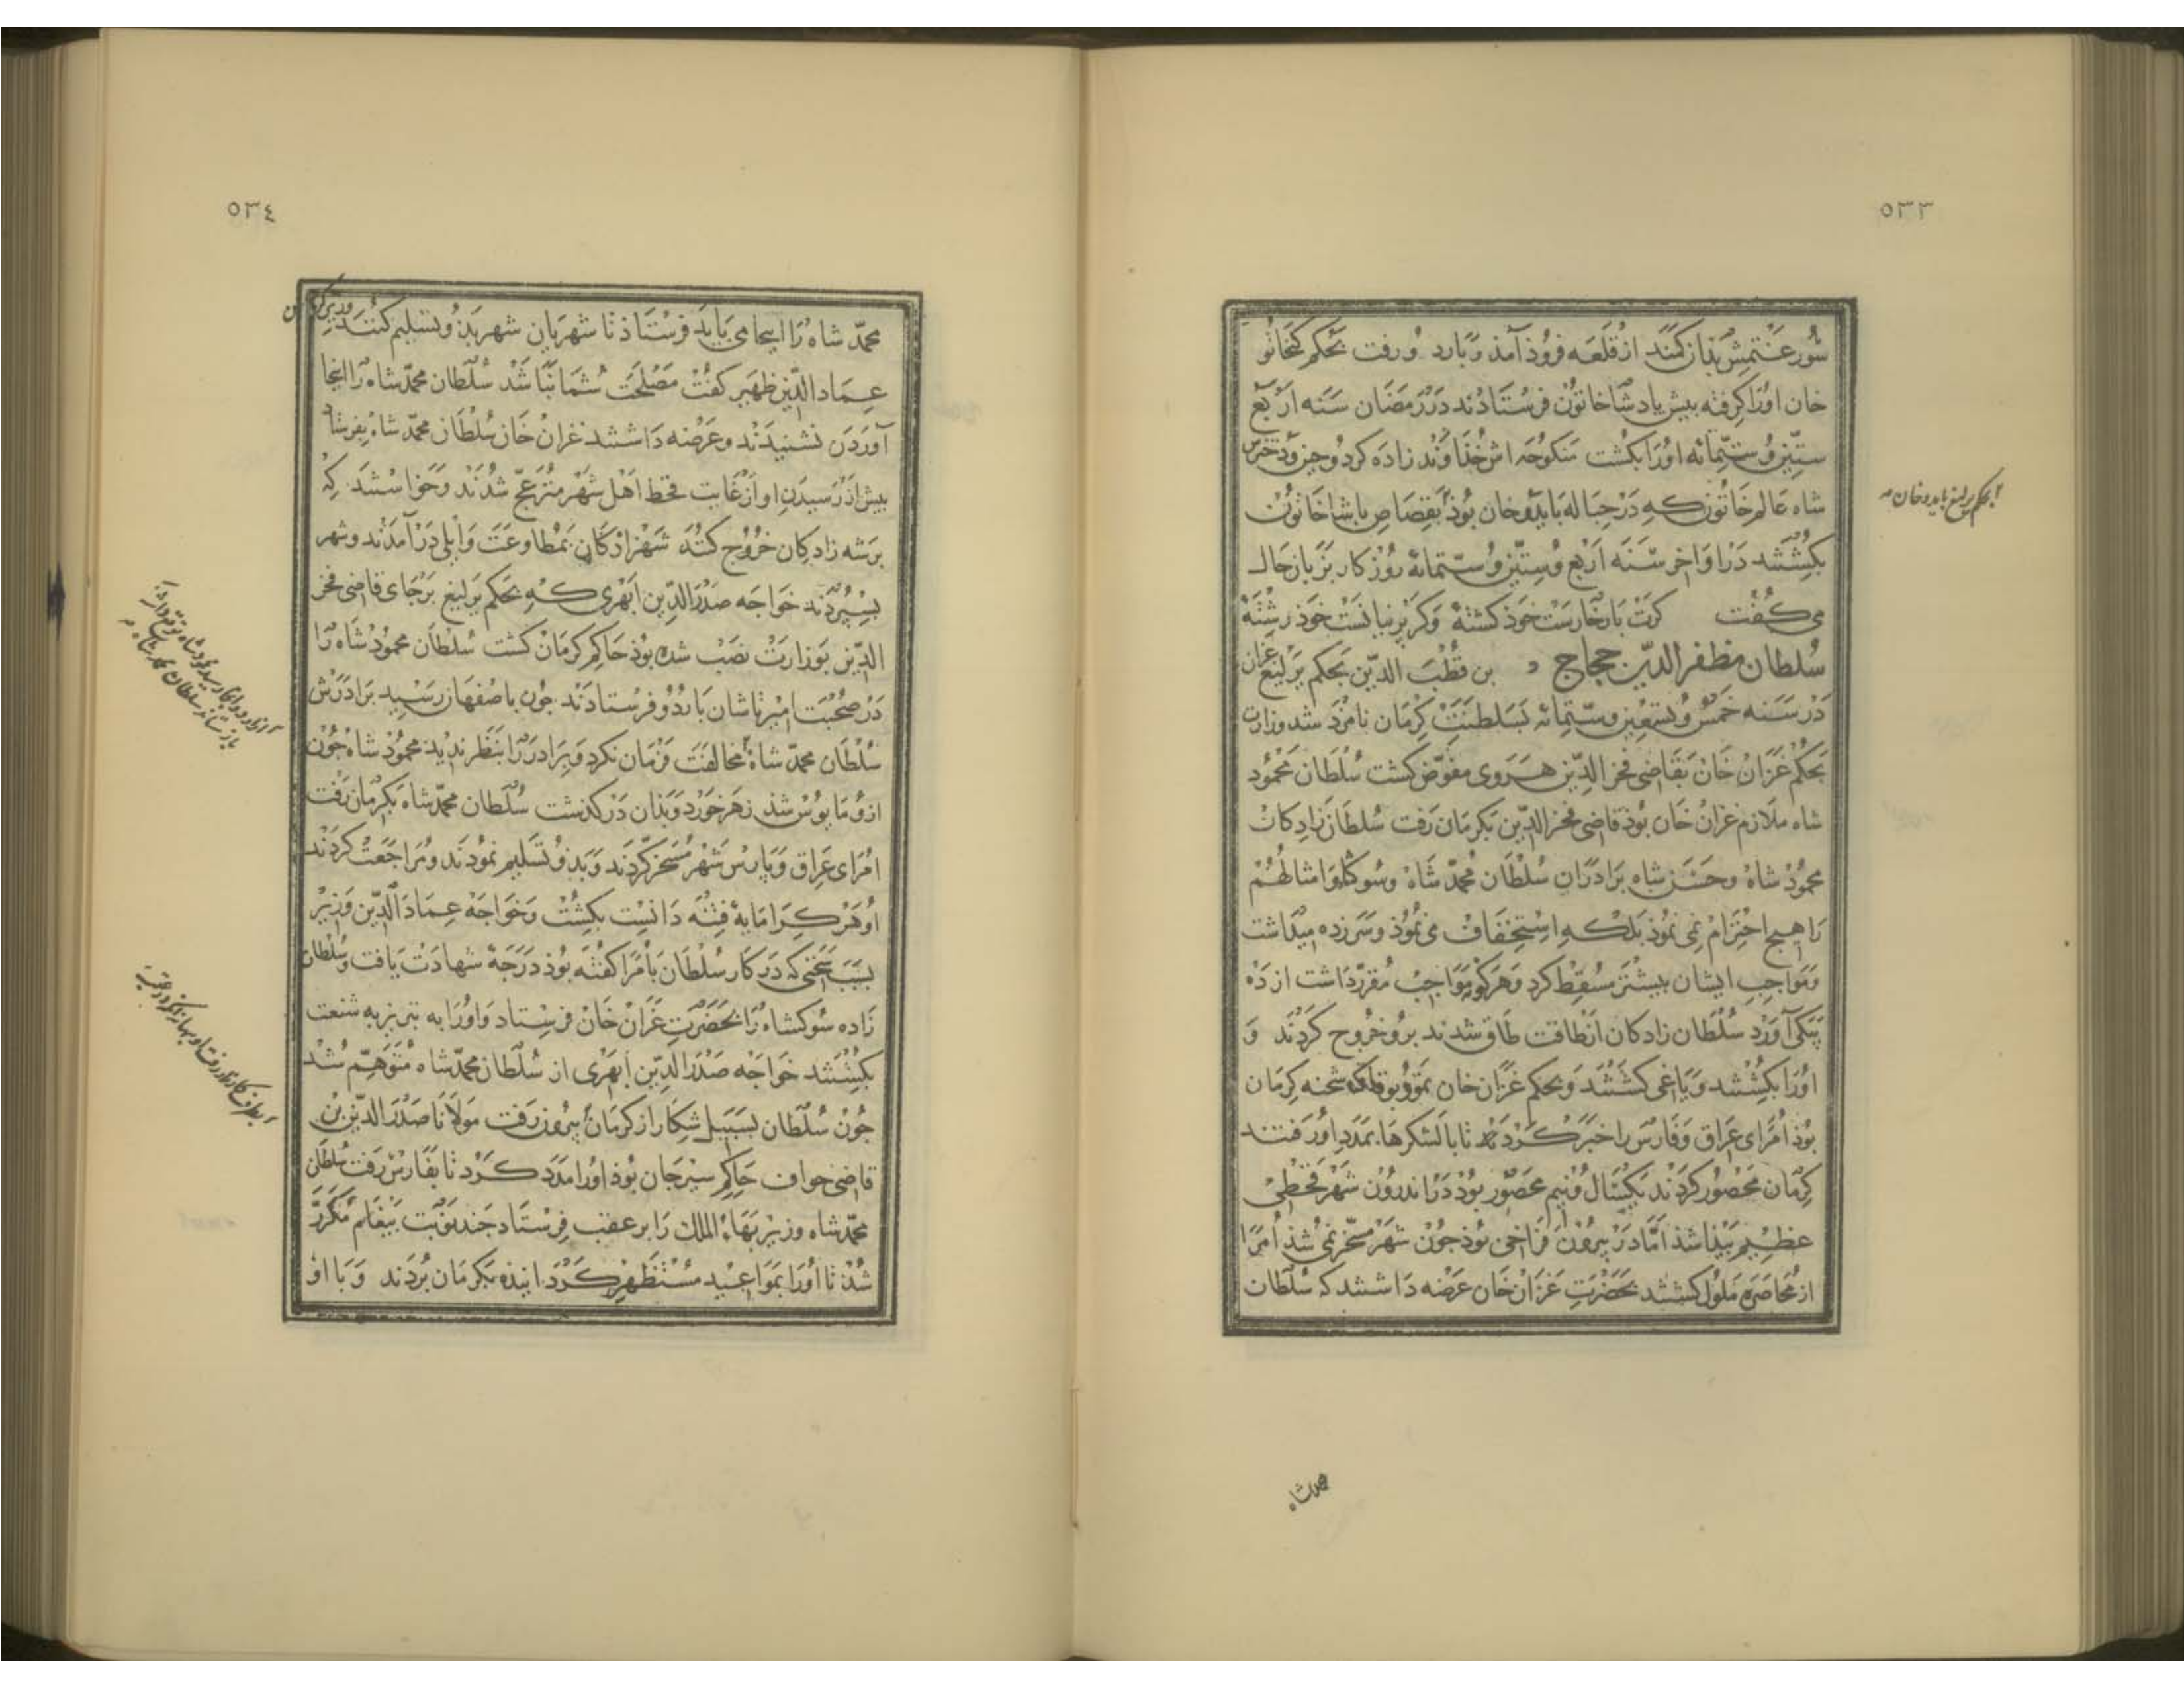 ٥٣٣
شور غتمش بذان کنند از قلعه فروذ آمذ و بارد و رفت بحکم کنجاتو
خان اورا کرفته پیش پادشا خاتون فرستادند در رمضان سنه اربع
ستین و ستمائه اورا بکشت منکوحه اش خذاوند زاده کردوجین و دخترش
شاه عالم خاتون که در حباله بایدو خان بوذ بقصاص پاشا خاتون
بکشتند در اواخر سنه اربع و ستین و ستمائه روزکار بزبان حال
می کفت کرت بارخارست خوذ کشتۀ وکر پرنیانست خوذ رشتۀ
سلطان مظفر الدین حجاج بن قطب الدین بحکم یرلیغ غزان
در سنه خمس و تسعین و ستمائه بسلطنت کرمان نامزد شد وزارت
بحکم غزان خان بقاضی فخر الدین هروی مفوض کشت سلطان محمود
شاه ملازم غزان خان بوذ قاضی فخر الدین بکرمان رفت سلطان زادکان
محمود شاه وحسن شاه برادران سلطان محمد شاه وسوکشاه و امثالهم
را هیچ احترام نمی نموذ بلکه استخفاف می نموذ وسرزده میداشت
ومواجب ایشان بیشتر مسقط کرد وهرکو مواجب مقرر داشت از ده
بیکی آورد سلطان زادکان از طاقت طاق شدند برو خروج کردند و
اورا بکشتند ویاغی کشتند وبحکم غزان خان شحنه کرمان
بوذ امرای عراق وفارس را خبر کردند تا با لشکرها بمدد او رفتند
کرمان محصور کردند یکسال ونیم محصور بوذ در اندرون شهر قحطی
عظیم پیذا شذ اما در بیرون فراخی بوذ جون شهر مسخر نمی شذ امرا
از محاصره ملول کشتند بحضرت غزان خان عرضه داشتند که سلطان
بحکم یرلیغ بایدو خان
محمدشاه
٥٣٤
محمد شاه را اینجا می باید فرستاذ تا شهریان شهر بدو تسلیم کنند
عماد الدین ظهیر کفت مصلحت شما نباشد سلطان محمد شاه را اینجا
آوردن نشنیدند وعرضه داشتند غزان خان سلطان محمد شاه بفرستاد
پیش از رسیدن او از غایت قحط اهل شهر منزعج شدند وخواستند که
بر شه زادکان خروج کنند شهزادکان بمطاوعت وایلی در آمدند وشهر
بسپردند خواجه صدر الدین ابهری که بحکم یرلیغ بر جای قاضی فخر
الدین بوزارت نصب شده بوذ حاکم کرمان کشت سلطان محمود شاه را
در صحبت امیر تاشان باردو فرستادند جون باصفهان رسید برادرش
سلطان محمد شاه مخالفت فرمان نکرد وبرادر را بنظر ندید محمود شاه جون
ازو مایوس شذ زهر خورد وبذان در کذشت سلطان محمد شاه بکرمان رفت
امرای عراق وپارس شهر مسخر کردند وبذو تسلیم نمودند ومراجعت کردند
او هر کرا مایه فتنه دانست بکشت وخواجه عماد الدین وزیر
بسبب سختی که در کار سلطان با امرا کفته بوذ درجه شهادت یافت وسلطان
زاده سوکشاه را بحضرت غزان خان فرستاد واورا به تبریز به شنعت
بکشتند خواجه صدر الدین ابهری از سلطان محمد شاه متوهم شد
جون سلطان بسبب شکار از کرمان بیرون رفت مولانا صدر الدین بن
قاضی خواف حاکم سیرجان بوذ اورا مدد کرد تا بفارس رفت سلطان
محمد شاه وزیر بهاء الملک را بر عقب فرستاد جند نوبت پیغام مکرر
شذ تا اورا بمواعید مستظهر کردانیذه بکرمان بردند وبا او